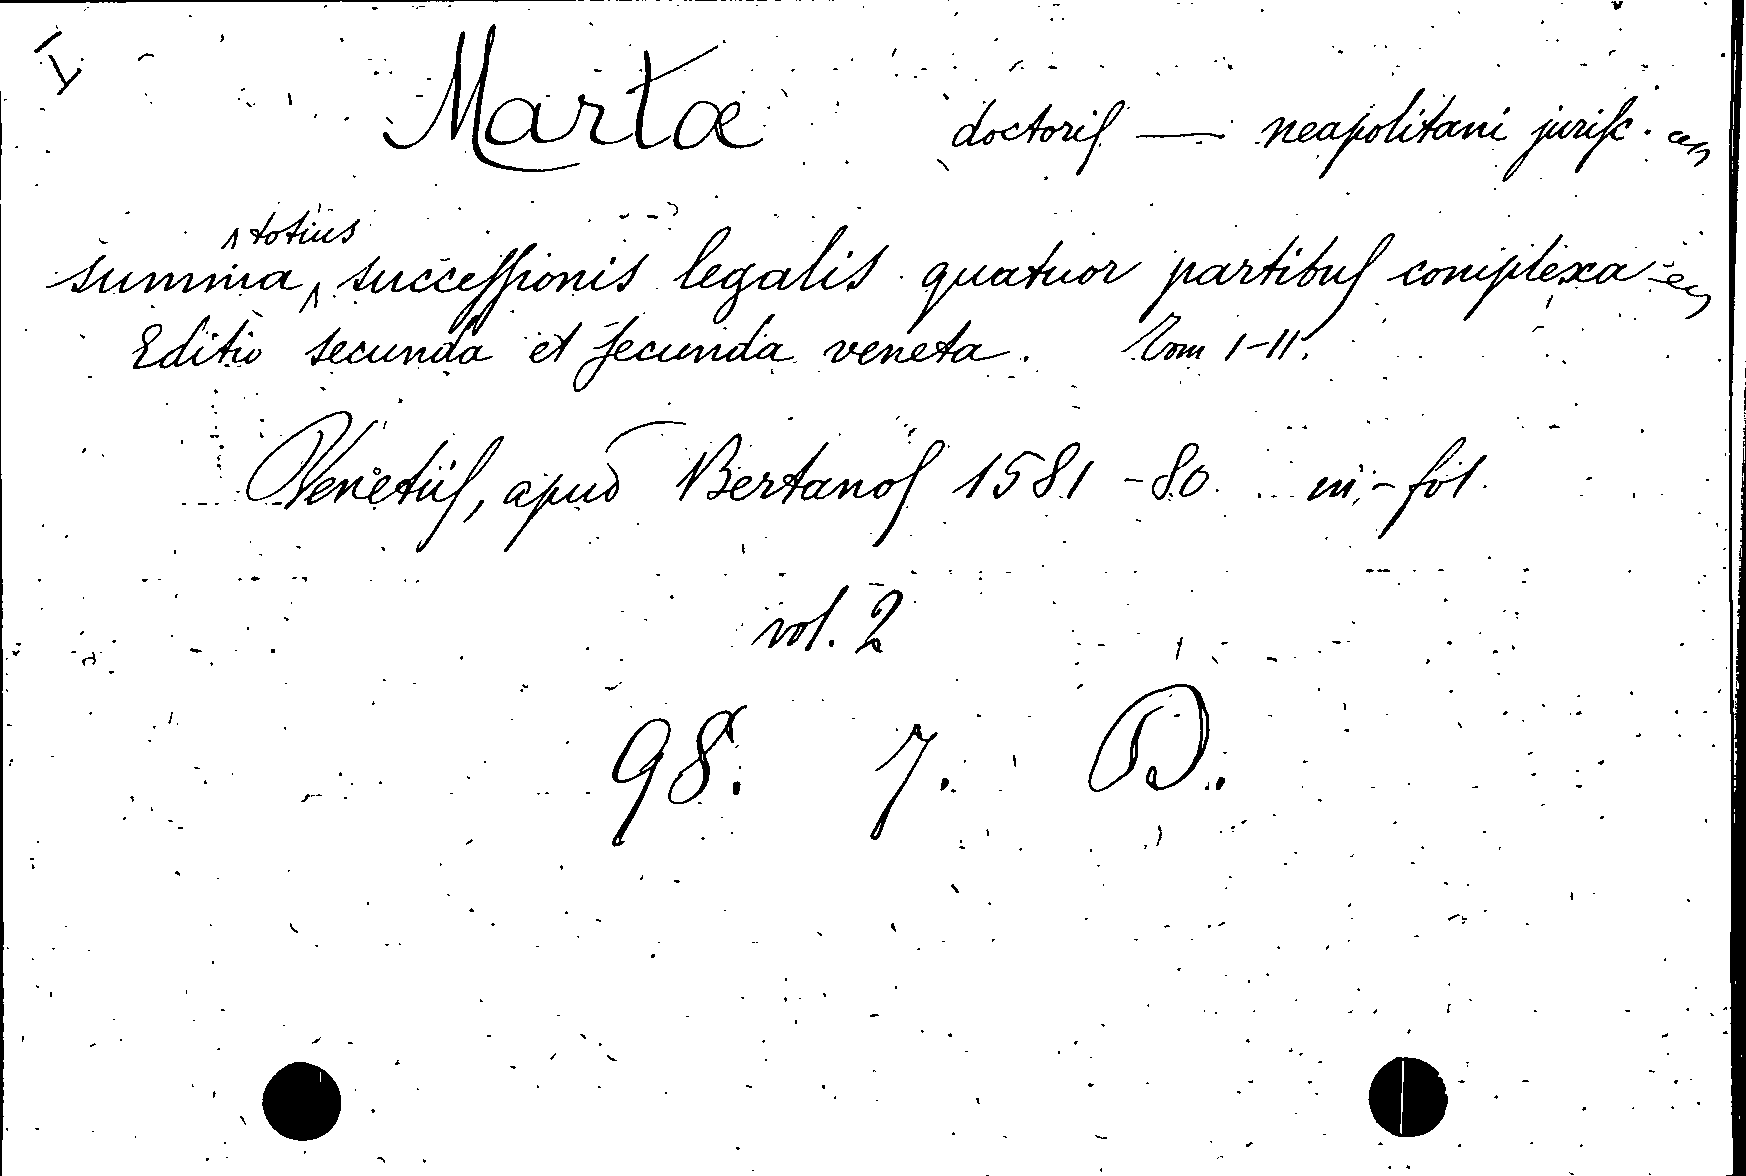 I
Martae doctoris — neapolitani jurisc.
totius
summa successionis legalis quatuor partibus complexa
Editio secunda et secunda veneta. Tom I-II.
Venetiis, apud Bertanos 1581-80 in-fol.
vol. 2
98. 7. D.